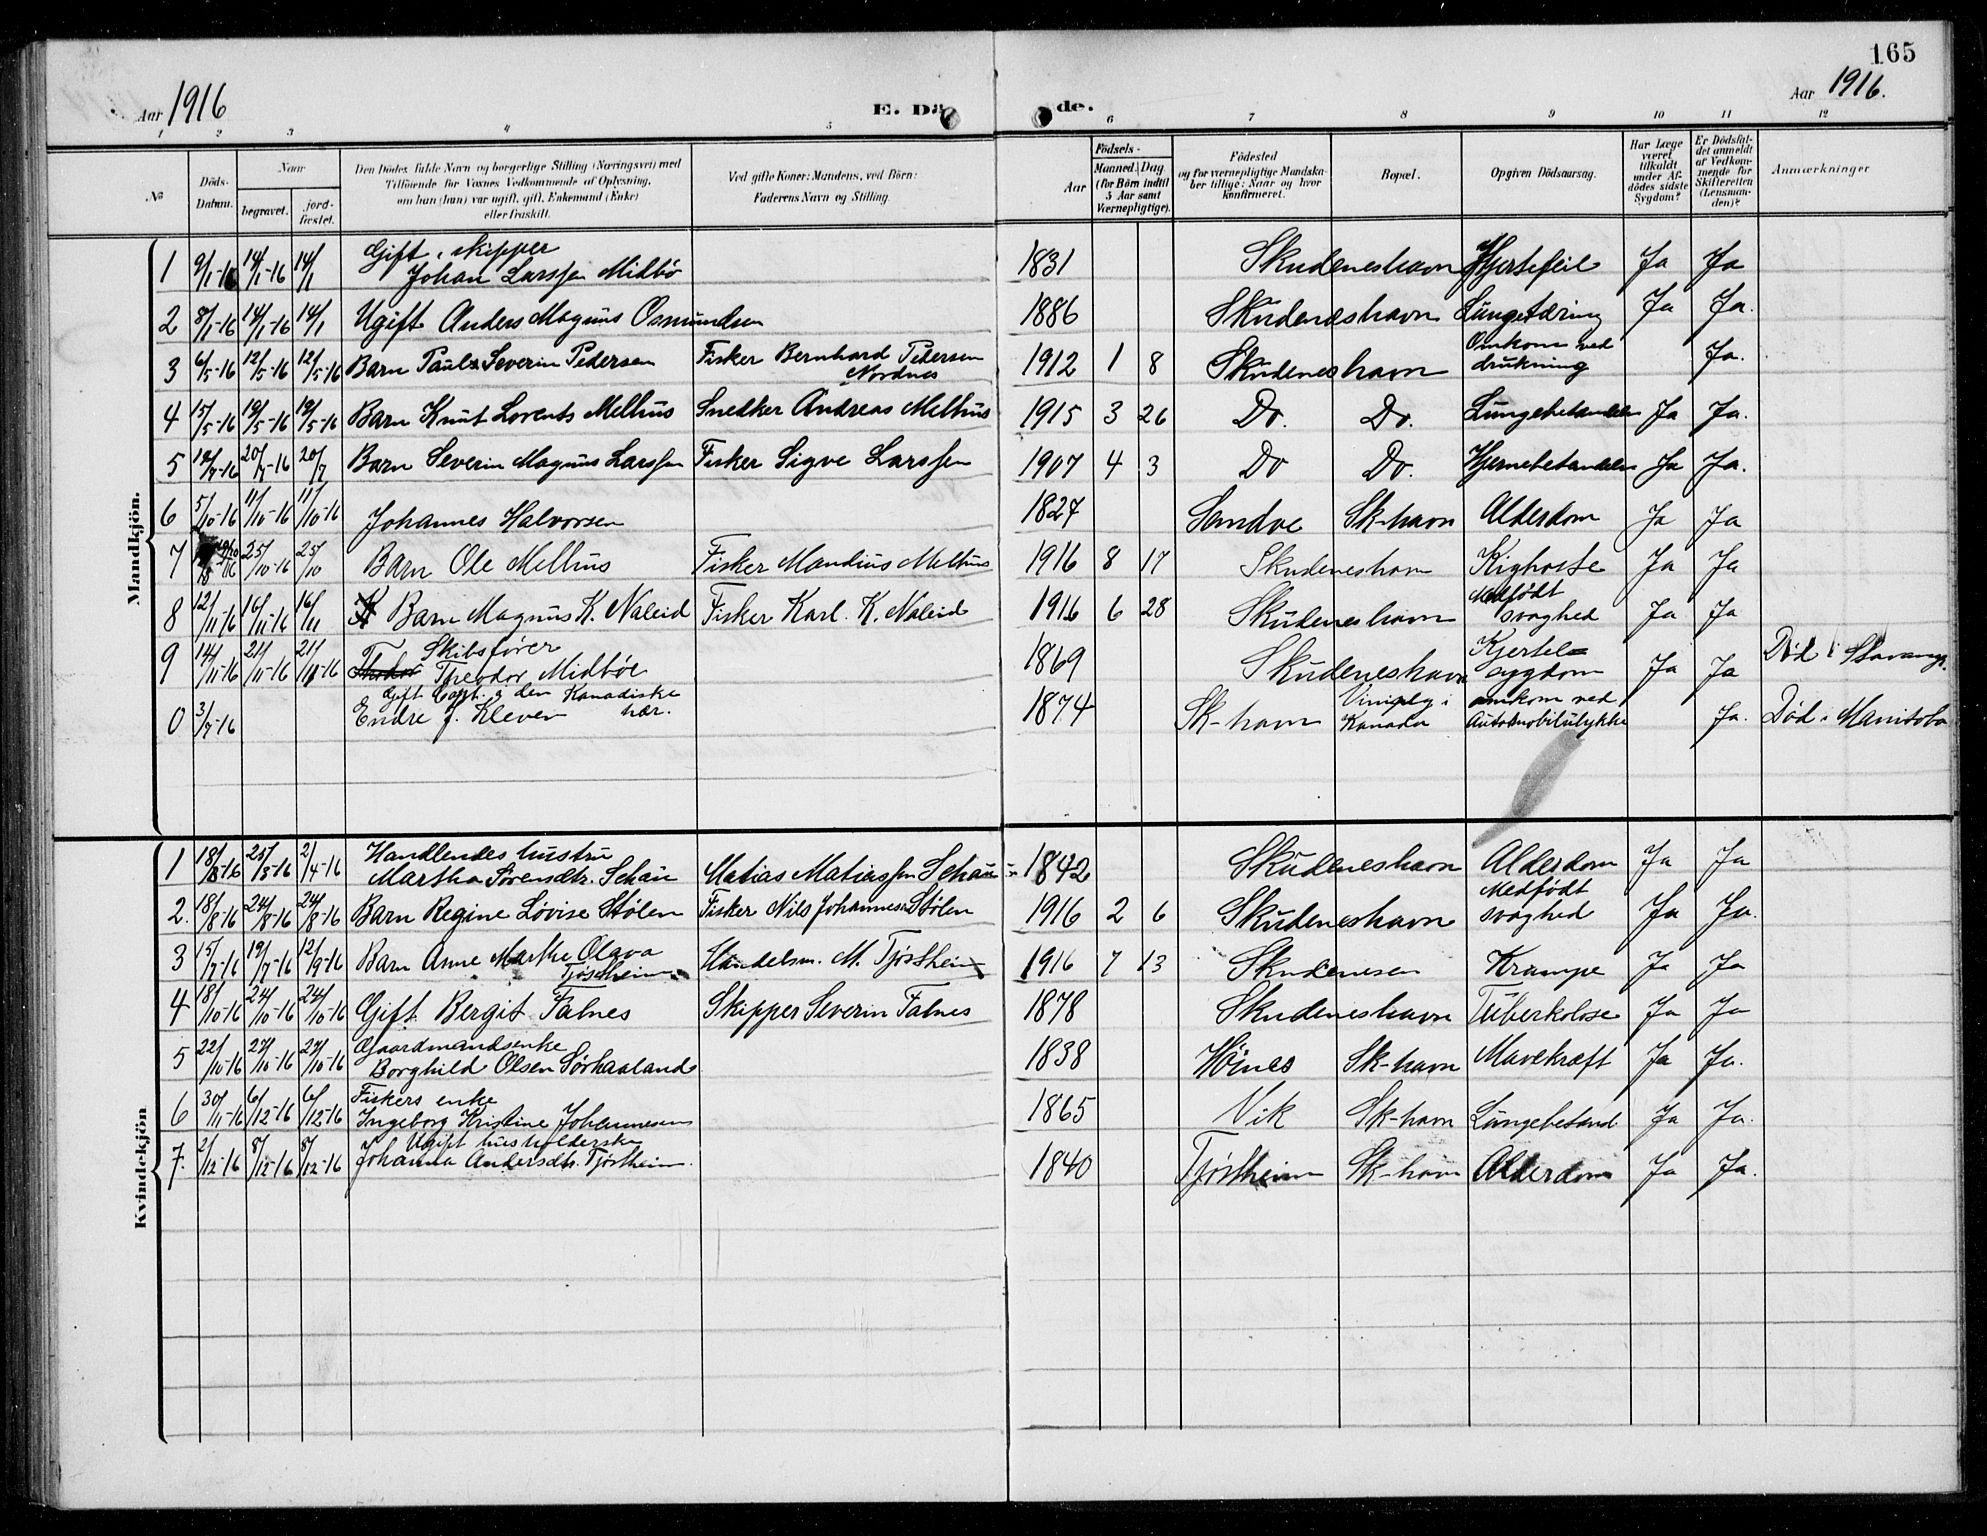 165
Aar 1916
E. Dö de.
Aar 1916.
1 2 3 4 5 6 7 8 9 10 11 12
№
Döds-Datum.
Naar
begravet.
jord-fæstet.
Den Dödes fulde Navn og borgerlige Stilling (Næringsvei) med
Tilföiende for Voxnes Vedkommende af Oplysning,
om han (hun) var ugift, gift, Enkemand (Enke)
eller fraskilt.
Ved gifte Koner: Mandens, ved Börn:
Faderens Navn og Stilling.
Födsels-
Aar
Maaned. Dag
(for Börn indtil
5 Aar samt
Værnepligtige).
Födested
og for værnepligtige Mandska-
ber tillige: Naar og hvor
konfirmeret.
Bopæl.
Opgiven Dödsaarsag.
Har Læge
været
tilkaldt
under Af-
dödes sidste
Sygdom?
Er Dödsfal-
det anmeldt
af Vedkom-
mende for
Skifteretten
(Lensman-
den)?
Anmærkninger
Mandkjön.
1 9/1-16 14/1-16 14/1 Gift, skipper
Johan Larssen Midbö 1831 Skudeneshavn Hjertefeil Ja Ja
2 8/1-16 14/1-16 14/1 Ugift Anders Magnus Osmundsen 1886 Skudeneshavn Lungetæring Ja Ja.
3 6/5-16 12/5-16 12/5-16 Barn Paul Severin Pedersen Fisker Bernhard Pedersen
Nordnes 1912 1 8 Skudeneshavn Omkom ved
drukning Ja.
4 15/5-16 19/5-16 19/5-16 Barn Knut Lorents Melhus Snedker Andreas Melhus 1915 3 26 Do. Do. Lungebetændelse Ja Ja.
5 20/7-16 20/7 Barn Severin Magnus Larssen Fisker Sigve Larssen 1907 4 3 Do Do. Hjernebetændelse Ja Ja.
6 5/10-16 11/10-16 11/10-16 Johannes Halvorsen 1827 Sandve Sk-havn Alderdom Ja Ja
7 25/10-16 25/10 Barn Ole Melhus Fisker Mandius Melhus 1916 8 17 Skudeneshavn Kighoste Ja Ja
8 12/11-16 16/11-16 16/11 Barn Magnus K. Naleid Fisker Karl. K. Naleid 1916 6 28 Skudeneshavn Medfödt
svaghed Ja Ja
9 14/11-16 21/11-16 21/11-16 Skibsfører
Theodor Midböe 1869 Skudeneshavn Kjertel=
sygdom Ja Ja Död i Stavanger
0 3/7-16 Gift Capt. i den Kanadiske
Endre J. Kleven hær. 1874 Sk-havn Vinipeg i
Kanada omkom ved
Automobilulykke Ja. Död i Manitoba
Kvindekjön
1 18/3-16 25/3-16 2/4-16 Handlendes hustru
Martha Sørensdtr. Schau Matias Matiassen Schau 1842 Skudeneshavn Alderdom Ja Ja
2. 18/8-16 24/8-16 24/8-16 Barn Regine Lovise Stølen Fisker Nils Johannesen Stølen 1916 2 6 Skudeneshavn Medfödt
svaghed Ja Ja.
3 15/7-16 19/7-16 12/9-16 Barn Anne Marthe Olava
Tjøstheim Handelsm. M. Tjøstheim 1916 7 13 Skudenesen Krampe Ja Ja
4 18/10-16 24/10-16 24/10-16 Gift Bergit Falnes Skipper Severin Falnes 1878 Skudeneshavn Tuberkolose Ja Ja
5 22/10-16 27/10-16 27/10-16 Gaardmandsenke
Borghild Olsen Sørhaaland 1838 Höines Sk-havn Mavekræft Ja Ja.
6 30/11-16 6/12-16 6/12-16 Fiskers enke
Ingeborg Kristine Johannesen 1865 Vik Sk-havn Lungebetænd. Ja Ja.
7. 2/12-16 8/12-16 8/12-16 Ugift husholderske
Johanna Andersdtr. Tjøstheim. 1840 Tjøstheim Sk-havn Alderdom Ja Ja.